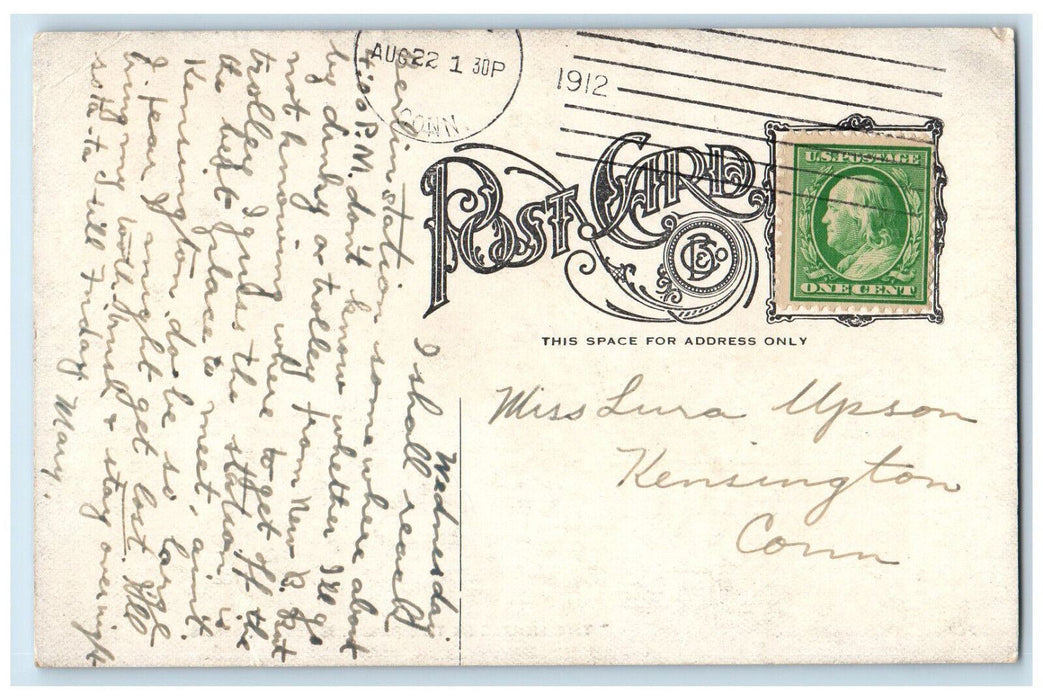 AUG 22 1 30P
CONN.
1912
U.S. POSTAGE
ONE CENT
POST CARD
THIS SPACE FOR ADDRESS ONLY
Miss Lura Upson
Kensington
Conn
Wednesday
I shall reach
Berlin station some where about
4:00 P.M. don't know whether I'll go
by dinky or trolley from New B. But
not knowing where to get off the
trolley I guess the station is
the best place to meet, aint
Kensington do be so large
I fear I might get lost. I'll
bring my toothbrush & stay over night
so ta ta till Friday Mary.